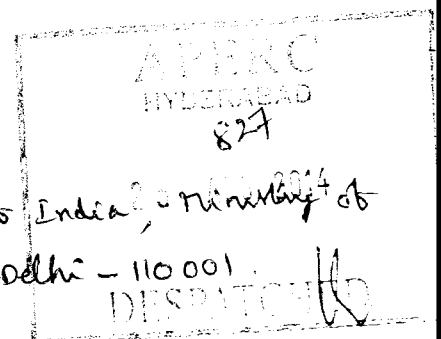 APERC
HYDERABAD
827
India, - Ministry of
2014
Delhi - 110 001.
DESPATCHED